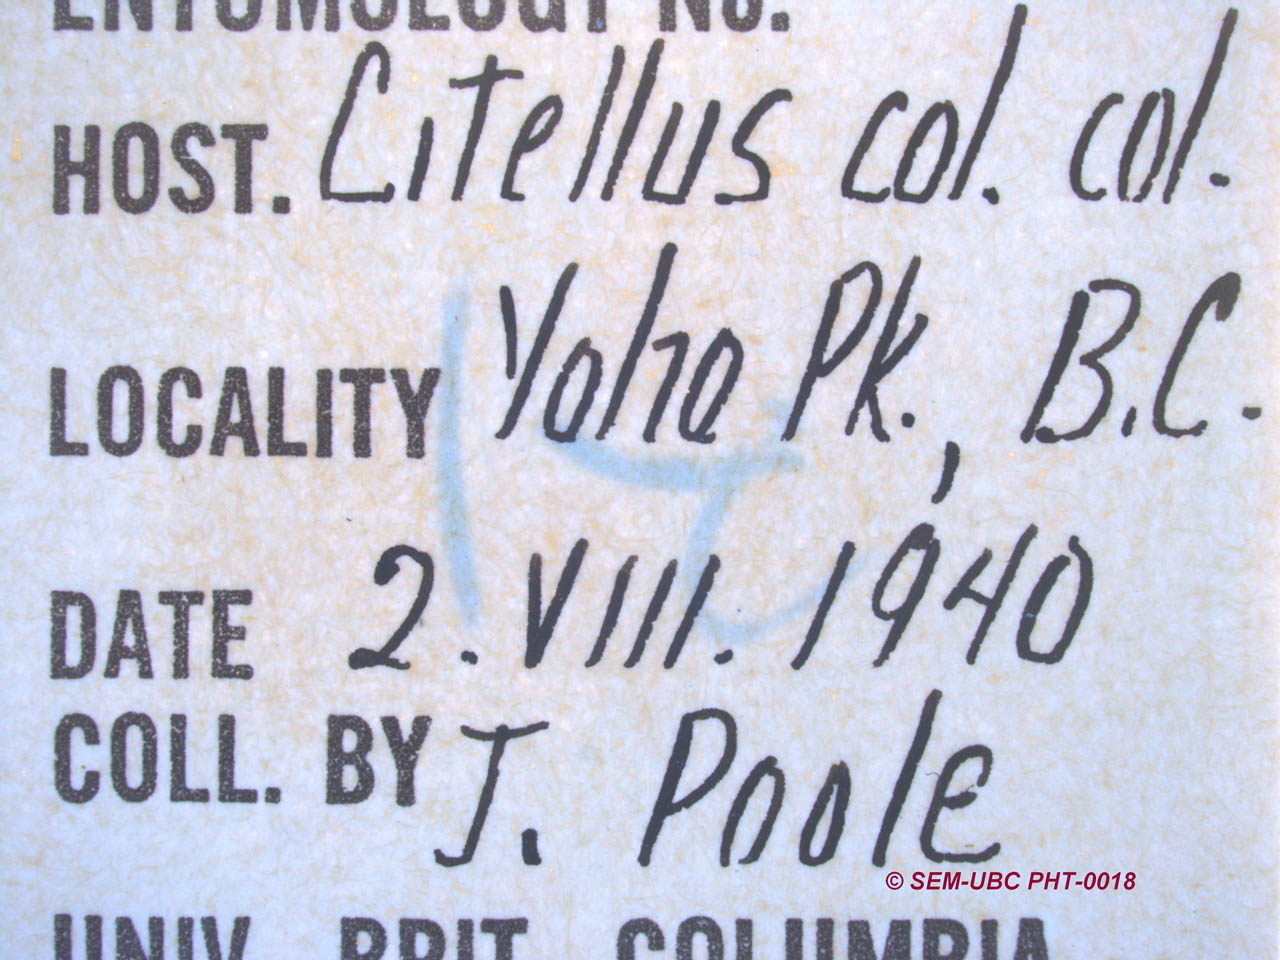 ENTOMOLOGY NO.
HOST. Citellus col. col.
LOCALITY Yoho Pk., B.C.
DATE 2.VIII.1940
COLL. BY J. Poole
© SEM-UBC PHT-0018
UNIV. BRIT. COLUMBIA